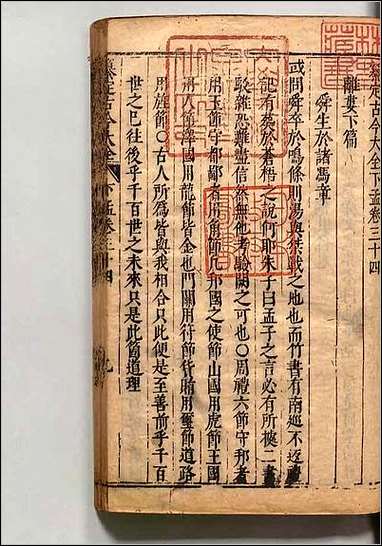 纂定古今大全下孟卷三十四
離婁下篇
舜生於諸馮章
或問舜卒於鳴條則湯與桀戰之地也而竹書有南巡不返禮
記有葬於蒼梧之說何耶朱子曰孟子之言必有所據二書
駁雜恐難盡信然無他考驗闕之可也○周禮六節守邦者
用玉節守都鄙者用角節凡邦國之使節山國用虎節土國
用人節澤國用龍節皆金也門關用符節貨賄用璽節道路
用旌節○古人所為皆與我相合只此便是至善前乎千百
世之已往後乎千百世之未來只是此箇道理
纂定古今大全
下孟卷三十四